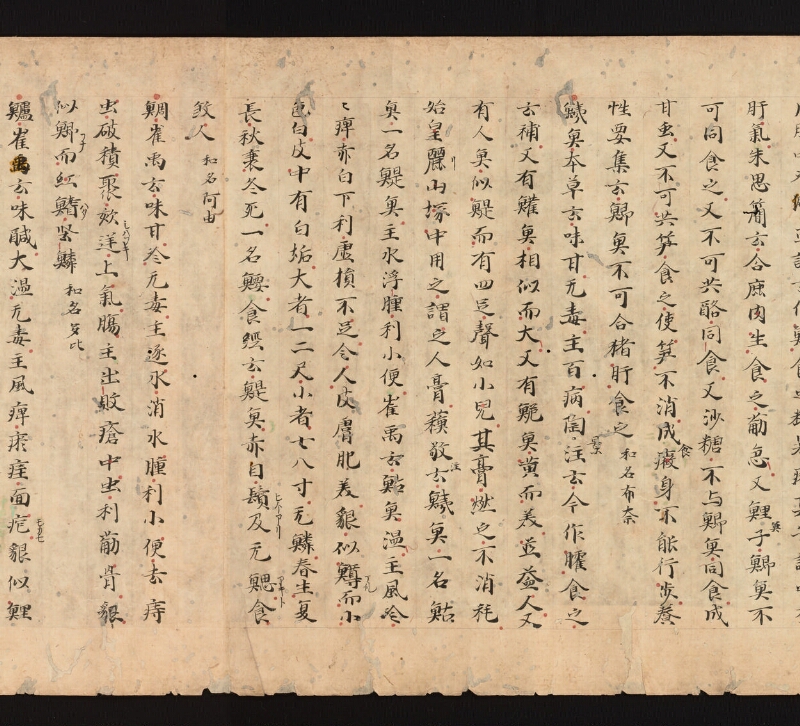 肝氣朱思簡云合鹿肉生食之筋急又鯉子鯽魚不
可同食之又不可共酪同食又沙糖不与鯽魚同食成
甘虫又不可共笋食之使笋不消成癥身不能行步養
性要集云鯽魚不可合猪肝食之 和名布奈
鮧魚本草云味甘无毒主百病陶注云今作臛食之
云補又有鱯魚相似而大又有鮠魚黄而美益人又
有人魚似鯷而有四足聲如小兒其膏燃之不消耗
始皇驪山塚中用之謂之人膏蘓敬云鮧魚一名鮎
魚一名鯷魚主水浮腫利小便崔禹云鮎魚温主風冷
〻痺赤白下利虚損不足令人皮膚肥美貌似鱒而小
色白皮中有白垢大者一二尺小者七八寸无鱗春生夏
長秋衰冬死一名鰋食經云鯷魚赤目鬚及无鰓食
煞人 和名阿由
鯛崔禹云味甘冷无毒主逐水消水腫利小便去痔
虫破積聚欬逆上氣腸主出敗瘡中虫利筋骨貌
似鯽而紅鰭堅鱗 和名多比
鱸崔禹云味醎大温无毒主風痺瘀疰面疱貌似鯉